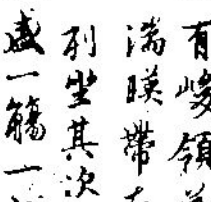 有峻領
湍暎帶
列坐其次
盛一觴一